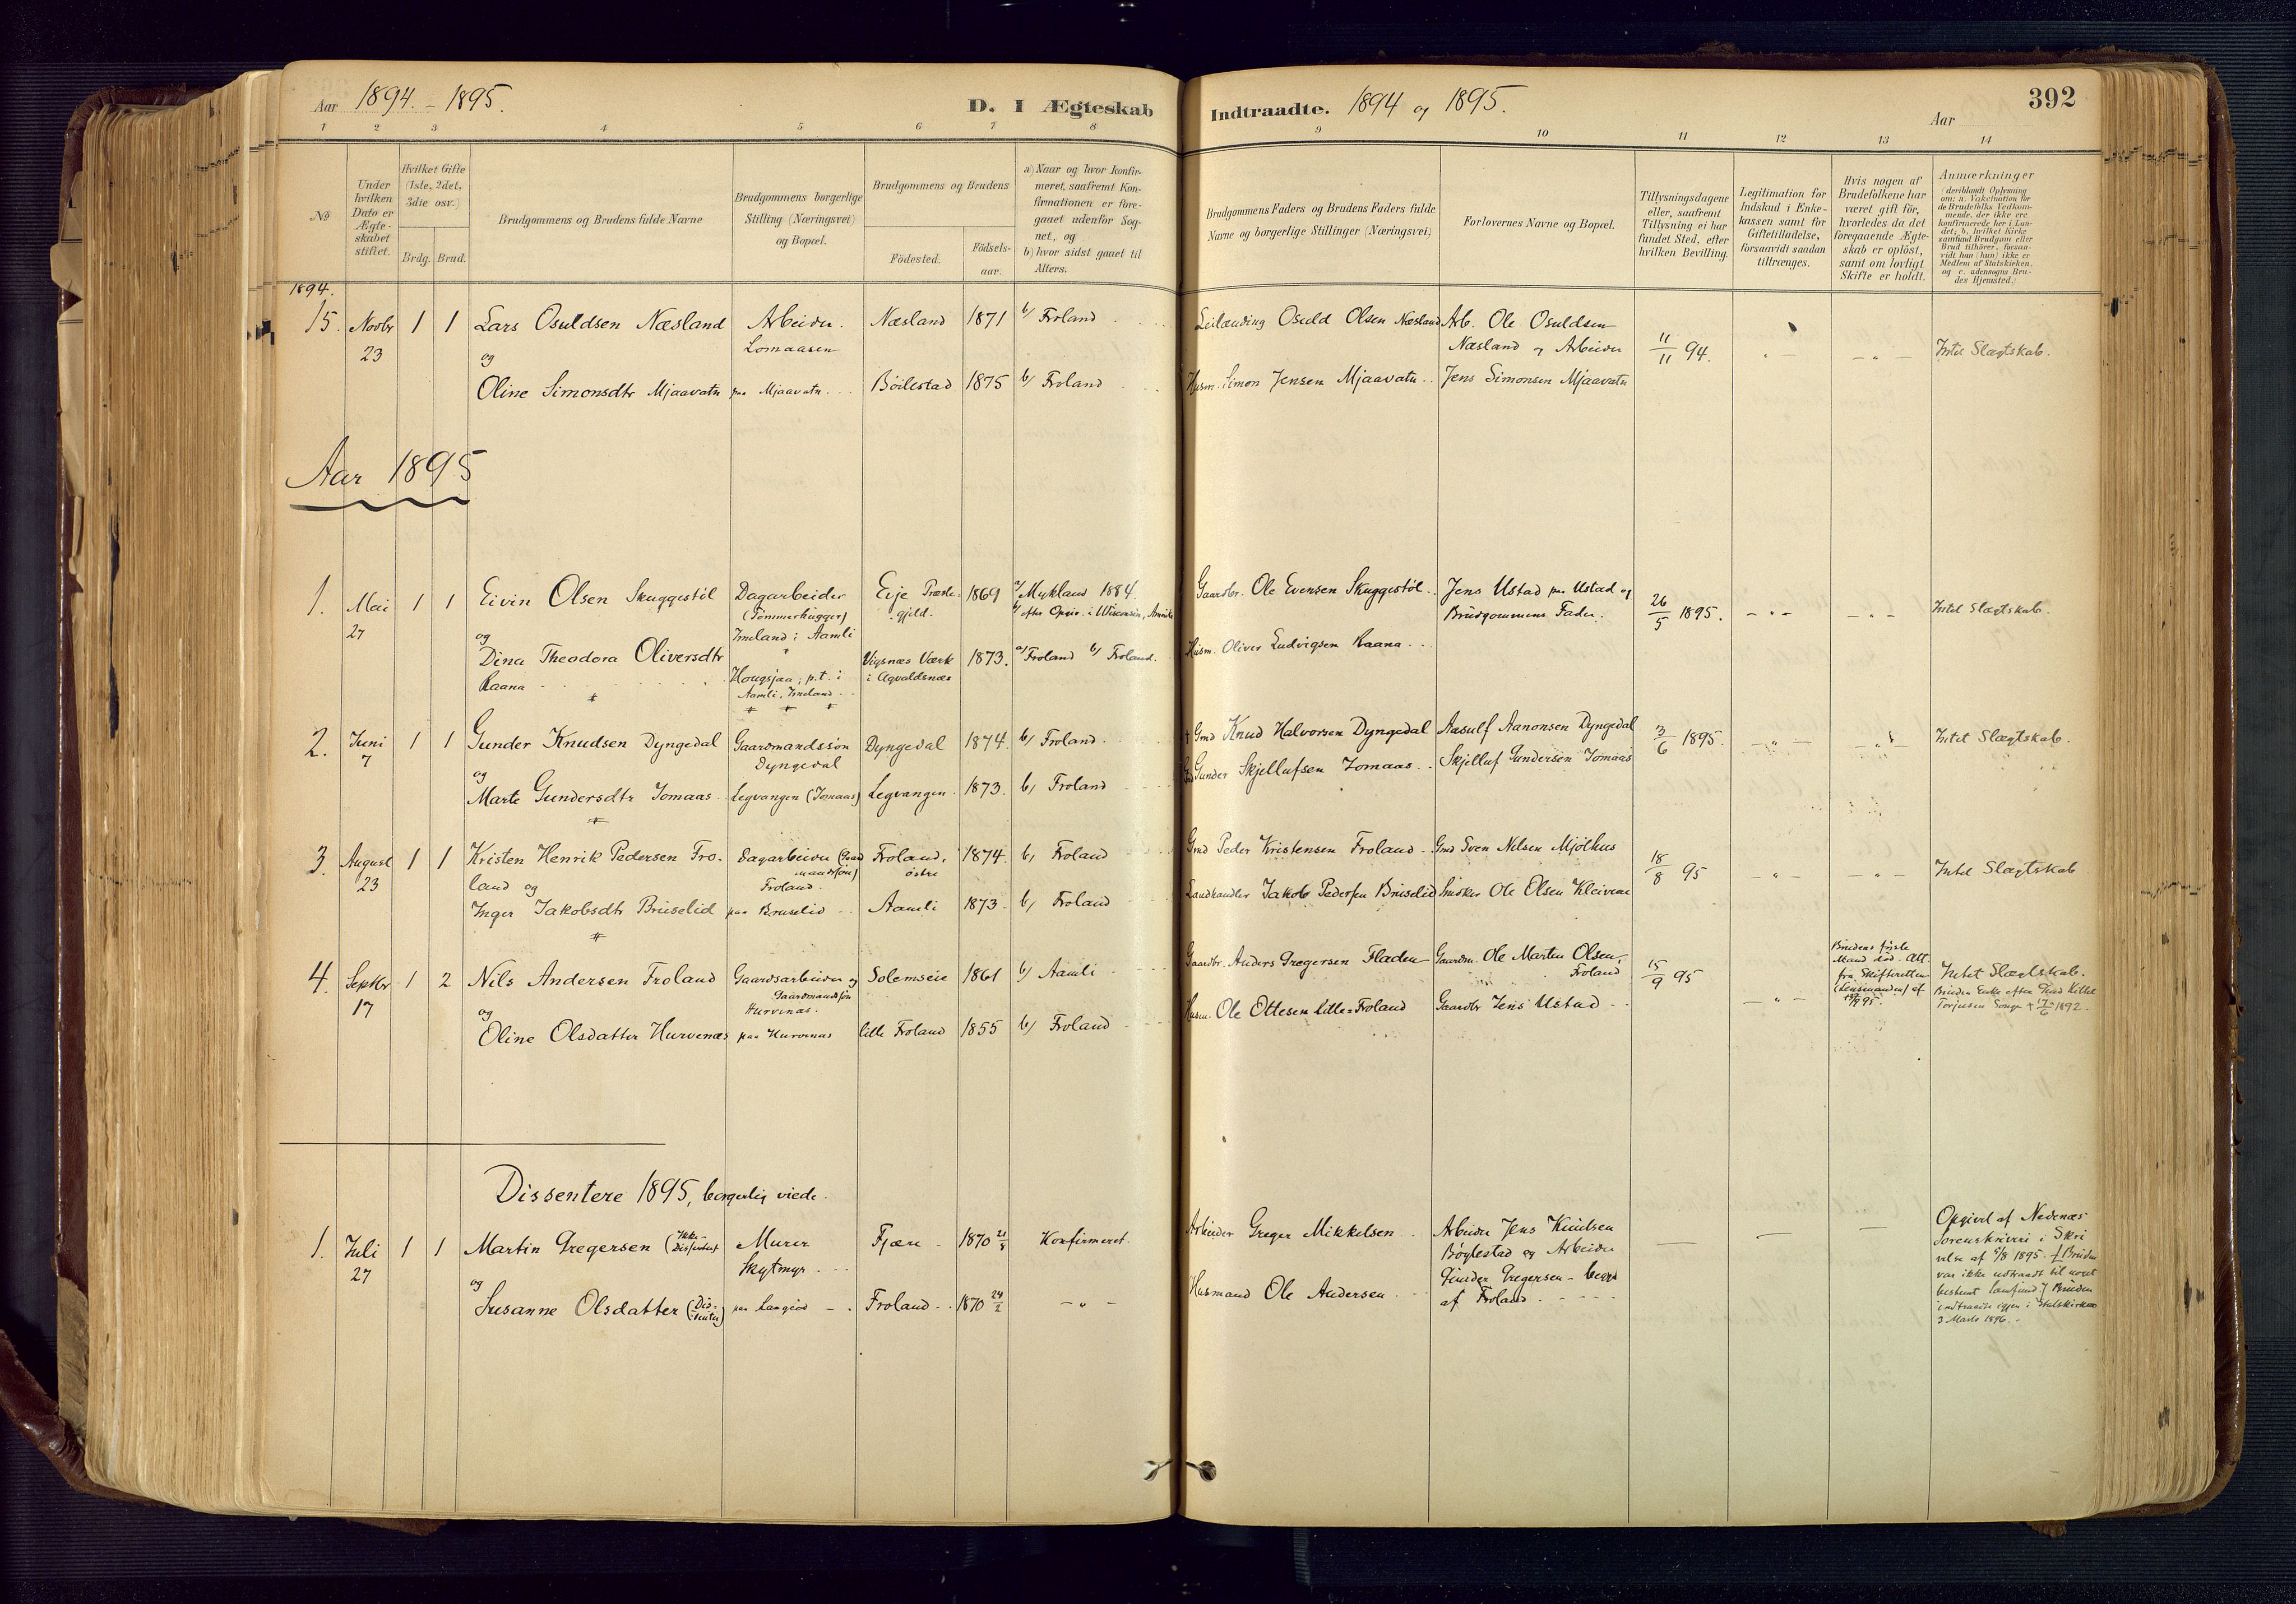 Aar 1894. – 1895.
D. I Ægteskab
Indtraadte. 1894 og 1895.
Aar
392
1 2 3 4 5 6 7 8
9 10 11 12 13 14
No
Under hvilken Dato er Ægteskabet stiftet.
Hvilket Gifte (1ste, 2det, 3die osv.)
Brdg. Brud.
Brudgommens og Brudens fulde Navne
Brudgommens borgerlige Stilling (Næringsvei) og Bopæl.
Brudgommens og Brudens
Födested.
Födsels-aar.
a) Naar og hvor konfir-
meret, saafremt Kon-
firmationen er fore-
gaaet udenfor Sog-
net, og
b) hvor sidst gaaet til
Alters.
Brudgommens Faders og Brudens Faders fulde
Navne og borgerlige Stillinger (Næringsvei)
Forlovernes Navne og Bopæl.
Tillysningsdagene
eller, saafremt
Tillysning ei har
fundet Sted, efter
hvilken Bevilling.
Legitimation for
Indskud i Enke-
kassen samt for
Giftetilladelse,
forsaavidt saadan
tiltrænges.
Hvis nogen af
Brudefolkene har
været gift för,
hvorledes da det
foregaaende Ægte-
skab er oplöst,
samt om lovligt
Skifte er holdt.
Anmærkninger
(deriblandt Oplysning
om: a. Vakcination for
de Brudefolks Vedkom-
mende, der ikke ere
konfirmerede her i Lan-
det; b. hvilket Kirke
samfund Brudgom eller
Brud tilhörer, forsaa-
vidt han (hun) ikke er
Medlem af Statskirken,
og c. udensogns Bru-
des Hjemsted.)
1894.
15. Novbr 23 1 1 Lars Osuldsen Næsland Arbeider. Lomaasen Næsland 1871 b/ Froland
og
Oline Simonsdtr Mjaavatn paa Mjaavatn Böilestad 1875 b/ Froland
Leilænding Osuld Olsen Næsland Arb. Ole Osuldsen
Næsland og Arbeider 11/11 94. – " – – " – Intet Slægtskab.
Husm. Simon Jensen Mjaavatn Jens Simonsen Mjaavatn
Aar 1895
1. Mai 27 1 1 Eivin Olsen Skuggestöl Dagarbeider (Tömmerhugger) Evje Præste-gjeld. 1869 a/ Mykland 1884.
Ireland i Aamli
og
Dina Theodora Oliversdtr
Raana Hougsjaa; p.t. i Vigsnæs Værk i Agvaldsnæs 1873. a/ Froland b/ Froland.
Gaardbr. Ole Evensen Skuggestöl Jens Ustad paa Ustad og
Brudgommens Fader. 26/5 1895. – " – – " – Intet Slægtskab.
Husm. Oliver Ludvigsen Raana
2. Juni 7 1 1 Gunder Knudsen Dyngedal Gaardmandssön Dyngedal Dyngedal 1874. b/ Froland
og
Marte Gundersdtr Jomaas Legvangen (Jomaas) Legvangen 1873. b/ Froland
† Gmd Knud Halvorsen Dyngedal Aasulf Aanonsen Dyngedal 3/6 1895. – " – – " – Intet Slægtskab.
Gunder Skjellufsen Jomaas Skjelluf Gundersen Jomaas
3. August 23 1 1 Kristen Henrik Pedersen Fro- Dagarbeider (Gaardmandssön) Froland, östre 1874. b/ Froland
land og Froland.
Inger Jakobsdtr Bruselid paa Bruselid Aamli 1873 b/ Froland
Gmd Peder Kristensen Froland Gmd Sven Nilsen Mjölhus 18/8 95 – " – – " – Intet Slægtskab
Landhandler Jakob Pedersen Bruselid Snekker Ole Olsen Kleivene
4. Septbr 17 1 2 Nils Andersen Froland Gaardsarbeider og Gaardmandssön Hurvenæs. Solemseie 1861 b/ Aamli
og
Oline Olsdatter Hurvenæs paa Hurvenæs lille Froland 1855 b/ Froland
Gaardbr. Anders Gregersen Fladen Gaardm. Ole Marten Olsen, Froland 15/9 95 – " –
Husm. Ole Ottesen Lille-Froland Gaardbr Jens Ustad
Brudens förste
Mand död. Att.
fra Skifteretten
(Lensmanden) af
Intet Slægtskab.
Bruden Enke efter Gmd Kittel
Torjusen Songe † 17/6 1892.
Dissentere 1895, borgerlig viede.
1. Juli 27 1 1 Martin Gregersen (Ikke-Dissenter) Murer Skytmyr Fjære 1870 21/8 Konfirmeret.
og
Susanne Olsdatter (Dis-senter) paa Langiod Froland 1870 24/2 – " –
Arbeider Greger Mikkelsen Arbeider Jens Knudsen
Böylestad og Arbeider
Husmand Ole Andersen Gunder Gregersen – begge
af Froland
Opgivet af Nedenæs
Sorenskriveri i Skri
velse af 6/8 1895. Bruden
var ikke udtraadt til noget
bestemt Samfund. Bruden
indtraadte igjen i Statskirken
3 Marts 1896.